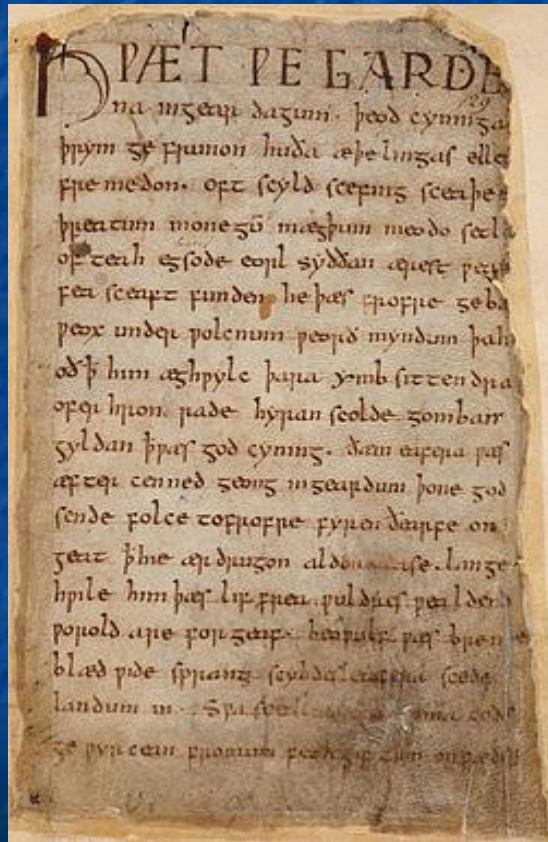 HǷÆT ǷE GARDE
129
na ingear dagum. þeod cyninga
þrym ge frunon huða æþelingas elle
fremedon. oft scyld scefing sceaþe
þreatum monegū mægþum meodo setla
of teah egsode eorl syððan ærest ƿear
fea sceaft funden he þæs frofre geba
ƿeox under ƿolcnum ƿeorð myndum þah
oð ꝥ him æghƿylc þara ymb sittendra
ofer hron rade hyran scolde gomban
gyldan ꝥ ƿæs god cyning. ðæm eafera ƿæs
æfter cenned geong ingeardum þone god
sende folce tofrofre fyren ðearfe on
geat ꝥ hie ær drugon lange
hƿile him þæs lif frea ƿuldres ƿealdend
ƿorold are for geaf. beoƿulf ƿæs breme
blæd ƿide sprang scyldes eafera scede
landum in. Sƿa sceal guma gode
ge ƿyrcean fromum feoh giftum on fæder